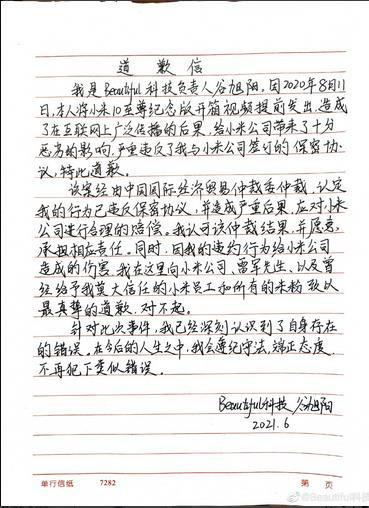 道歉信
我是Beautiful科技负责人谷旭阳,因2020年8月11
日,本人将小米10至尊纪念版开箱视频提前发出,造成
了在互联网上广泛传播的后果,给小米公司带来了十分
恶劣的影响,严重违反了我与小米公司签订的保密协
议,特此道歉。
该案经由中国国际经济贸易仲裁委仲裁,认定
我的行为已违反保密协议,并造成严重后果,应对小米
公司进行合理的赔偿。我认可该仲裁结果,并愿意
承担相应责任。同时,因我的违约行为给小米公司
造成的伤害,我在这里向小米公司、雷军先生、以及曾
经给予我莫大信任的小米员工和所有的米粉致以
最真挚的道歉,对不起。
针对此次事件,我已经深刻认识到了自身存在
的错误。在今后的人生之中,我会遵纪守法,端正态度,
不再犯下类似错误。
Beautiful科技 谷旭阳
2021.6
单行信纸 7282 第 页
@Beautiful科技